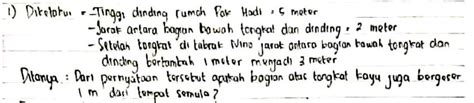 1) Diketahui : - Tinggi dinding rumah Pak Hadi : 5 meter
- Jarak antara bagian bawah tongkat dan dinding : 2 meter
- Setelah tongkat di tabrak Nino jarak antara bagian bawah tongkat dan
dinding bertambah 1 meter menjadi 3 meter
Ditanya : Dari pernyataan tersebut apakah bagian atas tongkat kayu juga bergeser
1 m dari tempat semula ?